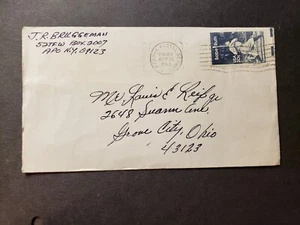 J.R. BRUGGEMAN
52TFW BOX 2007
APO N.Y. 09123
Mr. Louis E Reif Jr
2648 Swann Ave.
Grove City, Ohio
43123